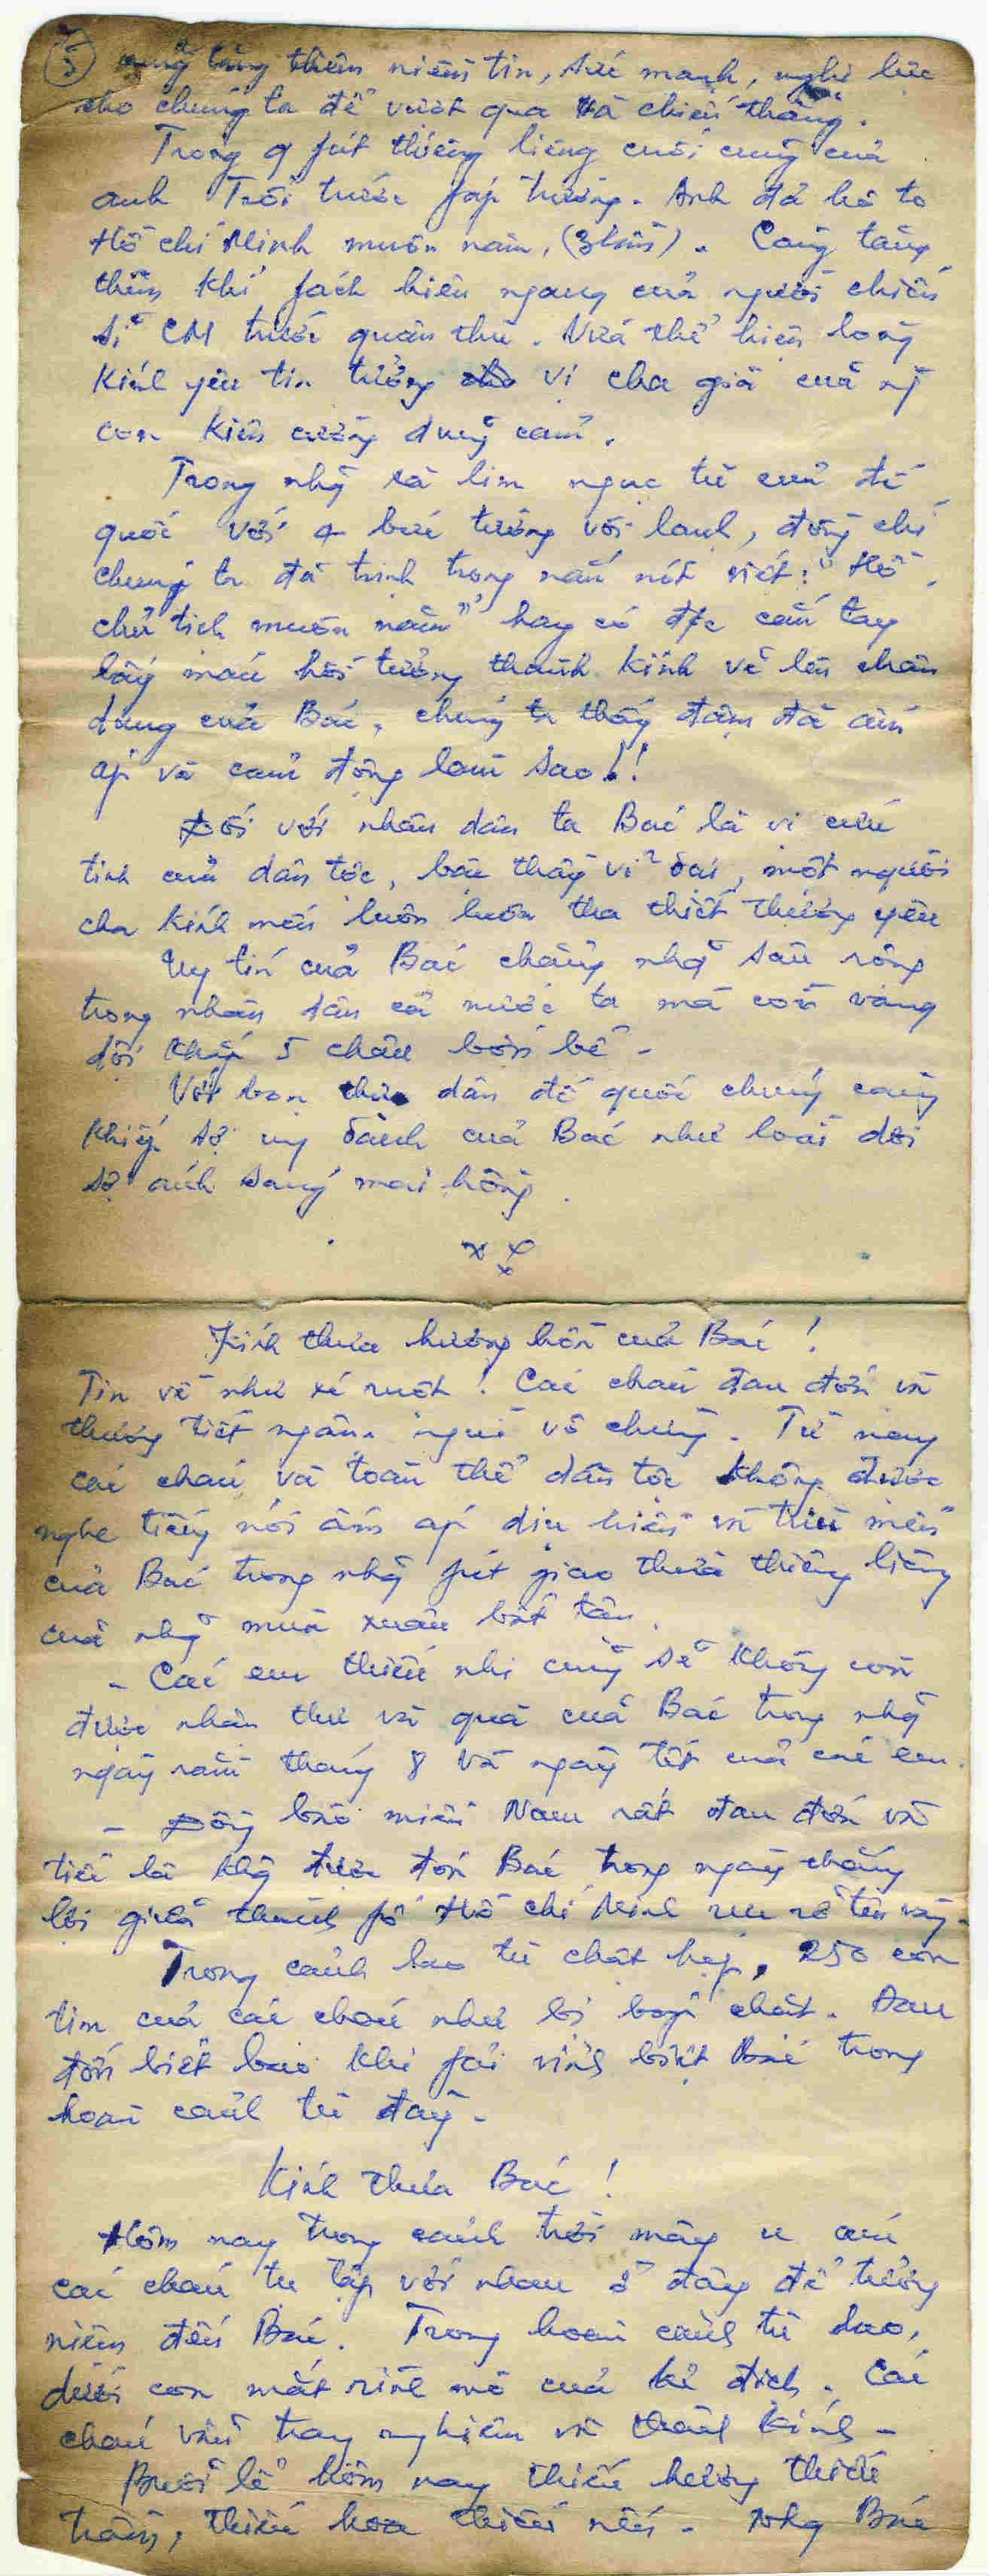 cũng tăng thêm niềm tin, sức mạnh, nghị lực
cho chúng ta để vượt qua và chiến thắng.
Trong q fút thiêng liêng cuối cùng của
anh Trỗi trước fáp trường. Anh đã hô to
Hồ chí Minh muôn năm, (3 lần). Càng tăng
thêm khí fách hiên ngang của người chiến
sĩ CM trước quân thù. Vừa thể hiện lòng
Kính yêu tin tưởng vị cha già của n~
con kiên cường dũng cảm.
Trong nhg~ xà lim ngục tù của đế
quốc với bức tường vôi lạnh, đồng chí
chúng ta đã trịnh trọng nắn nót viết: "Hồ
chủ tịch muôn năm" hay có đ/c cắn tay
lấy máu hồi tưởng thành kính vẽ lên chân
dung của Bác, chúng ta thấy đậm đà ấm
áp và cảm động làm sao!!
Đối với nhân dân ta Bác là vị cứu
tinh của dân tộc, bậc thầy vĩ đại, một người
cha kính mến luôn luôn tha thiết thương yêu
Uy tín của Bác chẳng nhg~ sâu rộng
trong nhân dân cả nước ta mà còn vang
dội khắp 5 châu bốn bể -
Với bọn thực dân đế quốc chúng càng
khiếp sợ uy danh của Bác như loài dơi
sợ ánh sáng mai hồng.
x x x
Kính thưa hương hồn của Bác!
Tin về như xé ruột! Các cháu đau đớn và
thương tiếc ngậm ngùi vô chừng. Từ nay
các cháu và toàn thể dân tộc không được
nghe tiếng nói ấm áp dịu hiền và trìu mến
của Bác trong nhg~ fút giao thừa thiêng liêng
của nhg~ mùa xuân bất tận.
- Các em thiếu nhi cũng sẽ không còn
được nhận thư và quà của Bác trong nhg~
ngày rằm tháng 8 và ngày tết của các em.
- Đồng bào miền Nam rất đau đớn và
tiếc là khg được đón Bác trong ngày thắng
lợi giữa thành fố Hồ chí Minh rực rỡ tên vàng.
Trong cảnh lao tù chật hẹp, 250 con
tim của các cháu như bị bóp chặt. Đau
đớn biết bao khi fải vĩnh biệt Bác trong
hoàn cảnh tù đày -
Kính thưa Bác!
Hôm nay trong cảnh trời mây u ám
các cháu tụ tập với nhau ở đây để tưởng
niệm đến Bác. Trong hoàn cảnh tù lao,
dưới con mắt rình mò của kẻ địch. Các
cháu vẫn trang nghiêm và thành kính -
Buổi lễ hôm nay thiếu hương thiếu
trầm, thiếu hoa thiếu nến - Nhg Bác